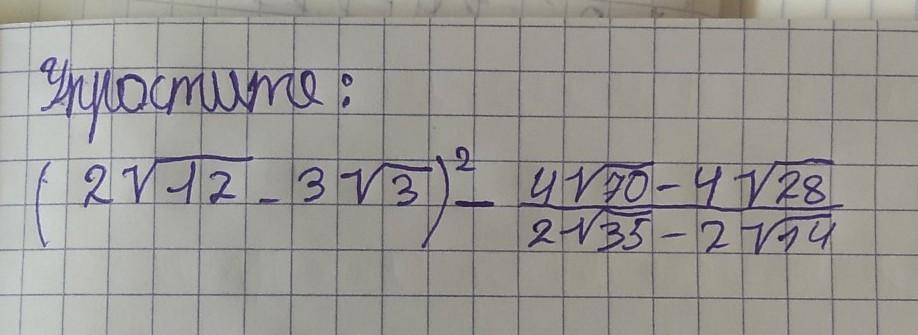 Упростите:
(2√12 - 3√3)² - (4√70 - 4√28)/(2√35 - 2√14)